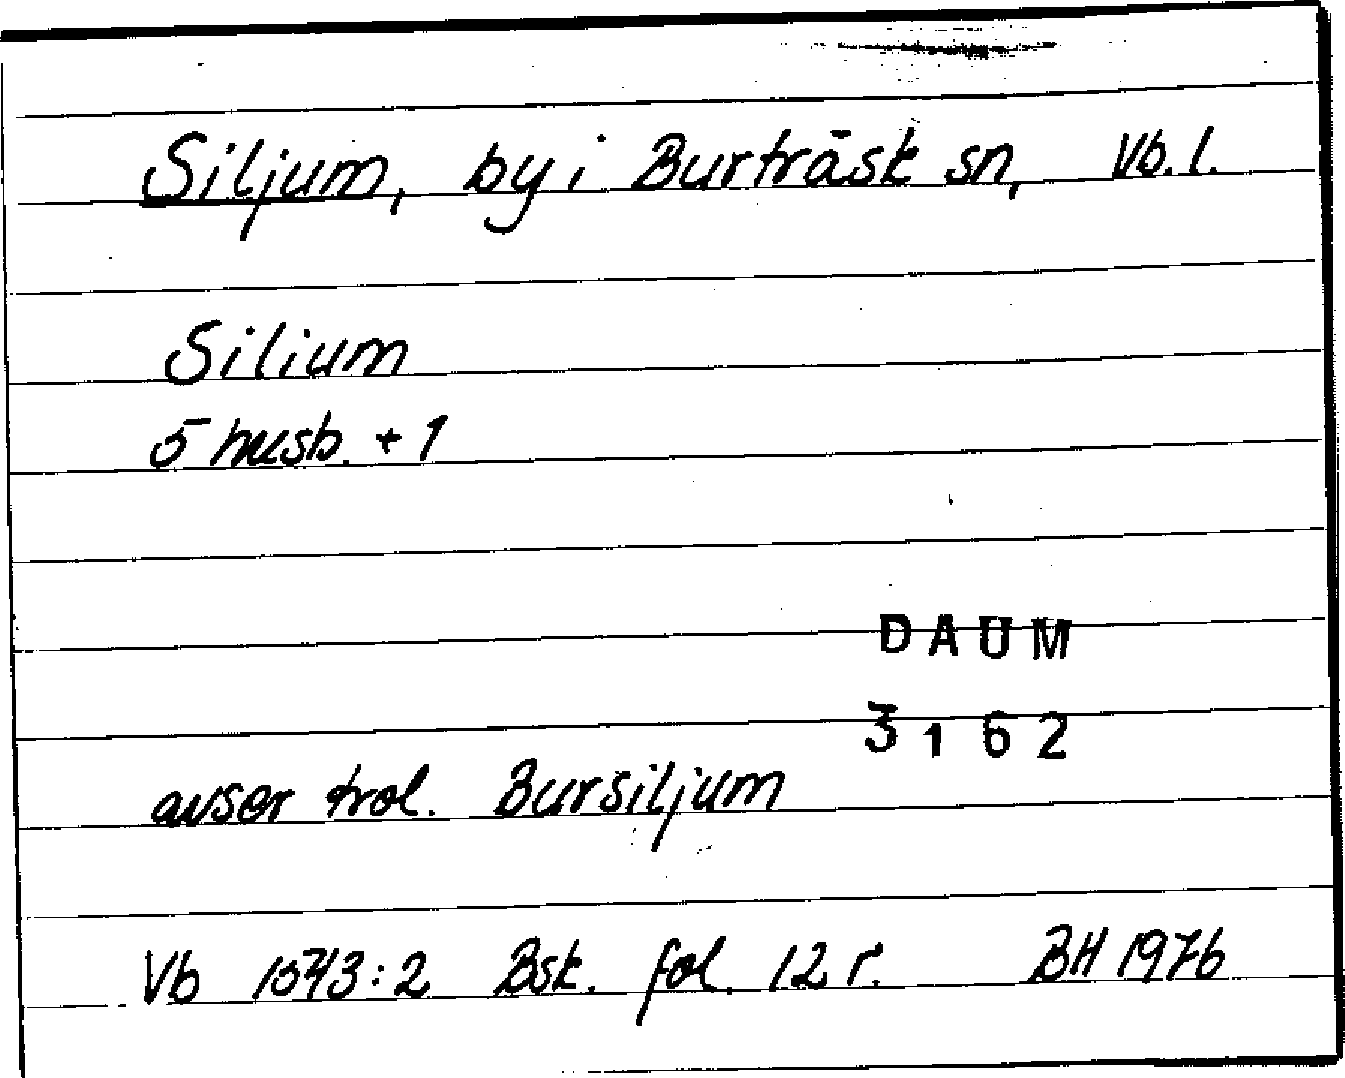 Siljum, by i Burträsk sn, Vb. l.
Silium
5 husb. + 1
DAUM
3162
avser trol. Bursiljum
Vb 1543:2 Bsk. fol. 12 r. BH 1976